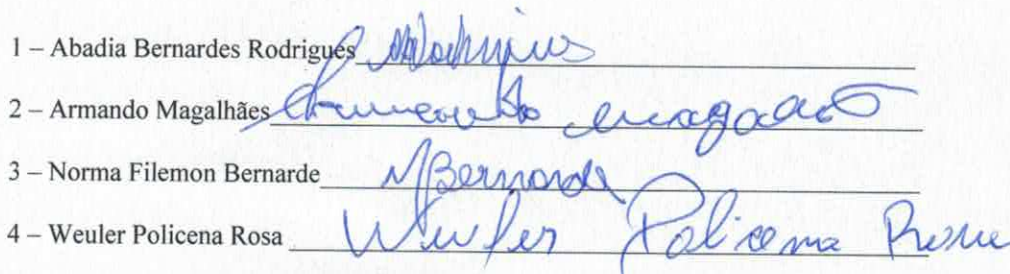 1 – Abadia Bernardes Rodrigues
2 – Armando Magalhães
3 – Norma Filemon Bernarde NBernarde
4 – Weuler Policena Rosa Weuler Policena Rosa